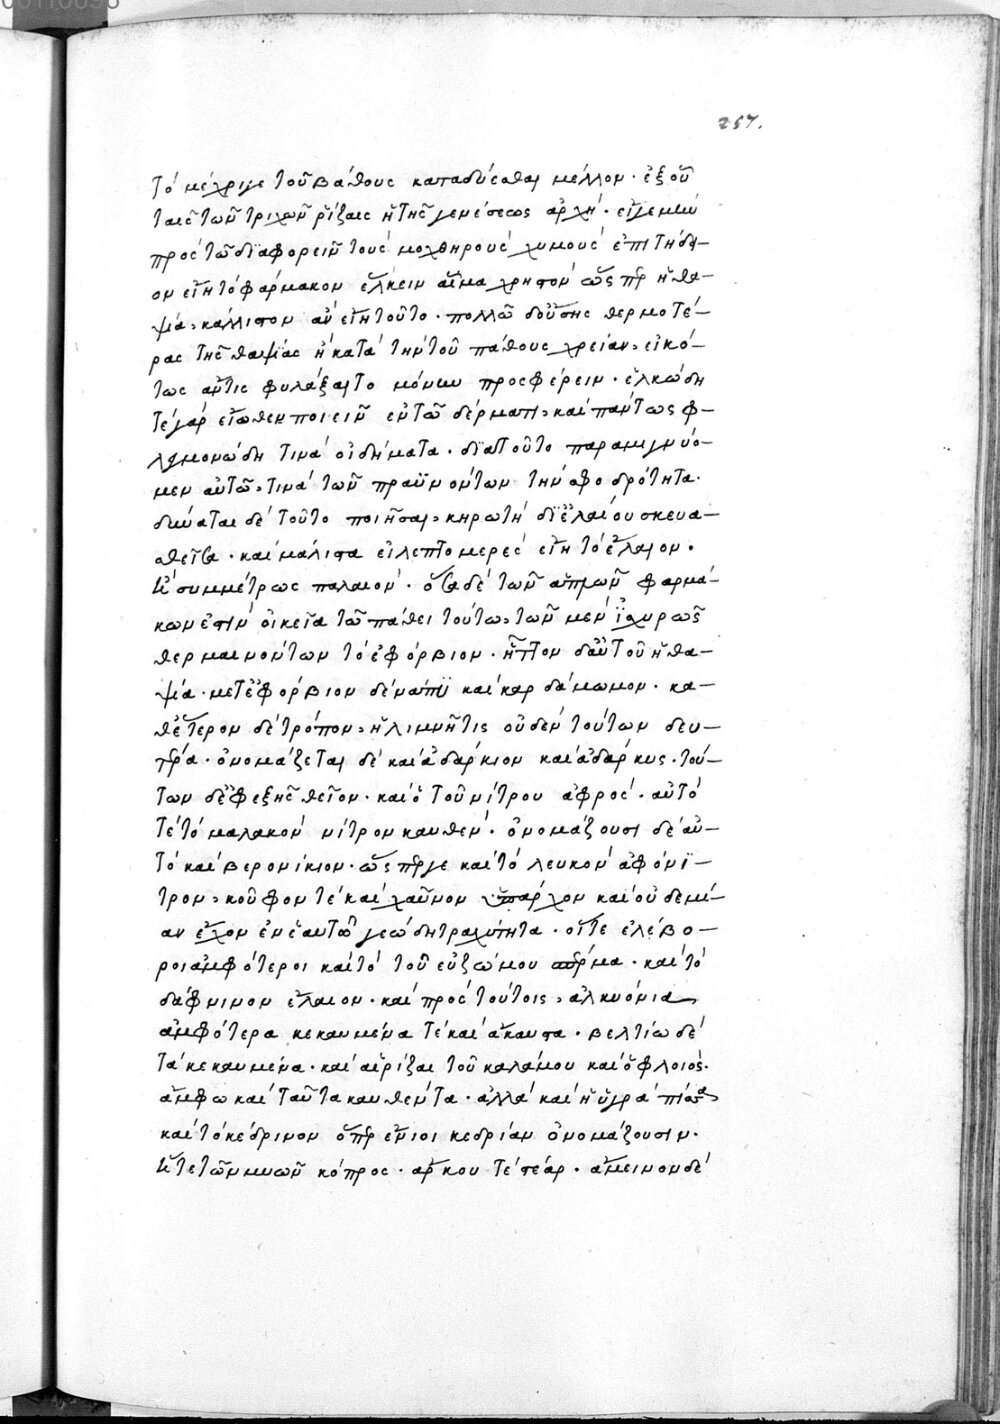 257.
τὸ μέχριγε τοῦ βάθους καταδύεσθαι μέλλον · ἐξ οὗ
ταῖς τῶν τριχῶν ῥίζαις ἡ τῆς γενέσεως ἀρχή · εἴγε μὴν
πρὸς τῶ διαφορεῖν τοὺς μοχθηροὺς χυμοὺς ἐπιτήδει-
ον εἴη τὸ φάρμακον ἕλκειν αἷμα χρηστὸν ὥσπερ ἡ θα-
ψία, κάλλιστον ἂν εἴη τοῦτο · πολλῶ δ' οὔσης θερμοτέ-
ρας τῆς θαψίας ἢ κατὰ τὴν τοῦ πάθους χρείαν, εἰκό-
τως ἄν τις φυλάξαιτο μόνην προσφέρειν · ἑλκώδη
τὲ γὰρ εἴωθεν ποιεῖν ἐν τῶ δέρματι, καὶ πάντως φ-
λεγμονώδη τινὰ οἰδήματα · διατοῦτο παραμιγνύο-
μεν αὐτῶ, τινὰ τῶν πραϋνόντων τὴν σφοδρότητα ·
δύναται δὲ τοῦτο ποιῆσαι, κηρωτὴ δι' ἐλαίου σκευα-
σθεῖσα · καὶ μάλιστα εἰ λεπτομερὲς εἴη τὸ ἔλαιον ·
κ συμμέτρως παλαιόν · ὅσα δὲ τῶν ἁπλῶν φαρμά-
κων ἐστὶν οἰκεῖα τῶ πάθει τούτω, τῶν μὲν ἰσχυρῶς
θερμαινόντων τὸ εὐφόρβιον · ἧττον δ' αὐτοῦ ἡ θα-
ψία · μετ' εὐφόρβιον δὲ νάπϋ καὶ κάρδαμωμον · κα-
θ' ἕτερον δὲ τρόπον, ἡ λιμνῆτις οὐδὲν τούτων δευ-
τέρα · ὀνομάζεται δὲ καὶ ἀδάρκιον καὶ ἀδάρκης · τού-
των δ' ἐφεξῆς θεῖον · καὶ ὁ τοῦ νίτρου ἀφρός · αὐτό
τε τὸ μαλακὸν νίτρον καυθέν · ὀνομάζουσι δὲ αὐ-
τὸ καὶ βερονίκιον · ὥσπερ γε καὶ τὸ λευκὸν ἀφόνι-
τρον, κοῦφον τὲ καὶ χαῦνον ὑπάρχον καὶ οὐδεμί-
αν ἔχον ἐν ἑαυτῶ γεώδη τραχύτητα · οἵτε ἐλέβο-
ροι ἀμφότεροι καὶ τὸ τοῦ εὐζώμου σπέρμα · καὶ τὸ
δάφνινον ἔλαιον · καὶ πρὸς τούτοις, ἀλκυόνια
ἀμφότερα κεκαυμένα τὲ καὶ ἄκαυστα · βελτίω δὲ
τὰ κεκαυμένα · καὶ αἱ ῥίζαι τοῦ καλάμου καὶ ὁ φλοιός ·
ἄμφω καὶ ταῦτα καυθέντα · ἀλλὰ καὶ ἡ ὑγρὰ πίσσα,
καὶ τὸ κέδρινον ὅπερ ἔνιοι κεδρίαν ὀνομάζουσιν ·
ἥ τε τῶν μυῶν κόπρος · ἄρκου τὲ στέαρ · ἄμεινον δὲ